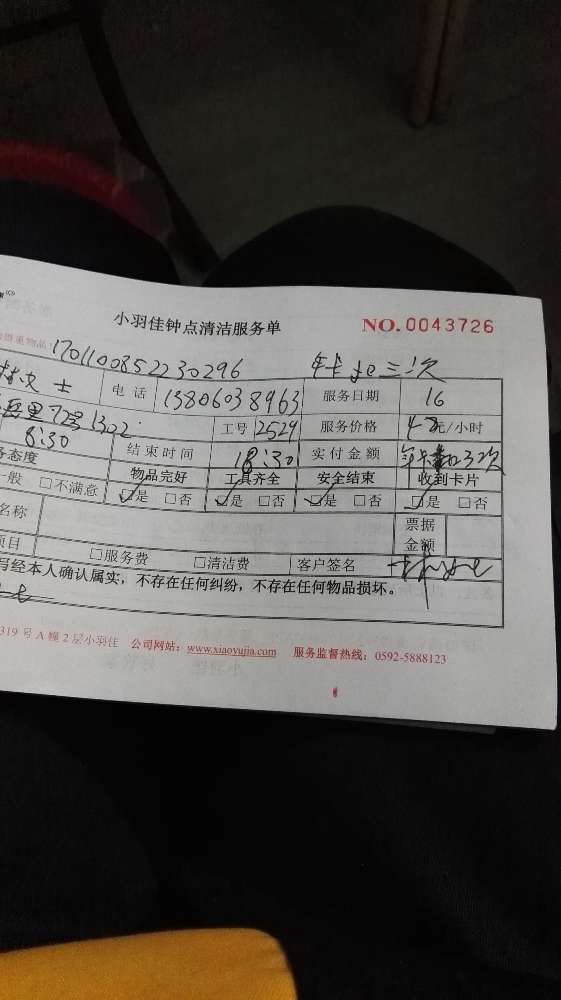 小羽佳钟点清洁服务单 NO.0043726
170110085223 0296 年卡扣三次
林女士 电话 13806038963 服务日期 16
1302 工号 2529 服务价格 元/小时
8:30 结束时间 18:30 实付金额 年卡扣3次
务态度 物品完好 工具齐全 安全结束 收到卡片
一般 □不满意 ☑是 □否 ☑是 □否 ☑是 □否 ☑是 □否
名称 票据金额
项目 □服务费 □清洁费 客户签名
写经本人确认属实，不存在任何纠纷，不存在任何物品损坏。
319号A幢2层小羽佳 公司网站：www.xiaoyujia.com 服务监督热线：0592-5888123